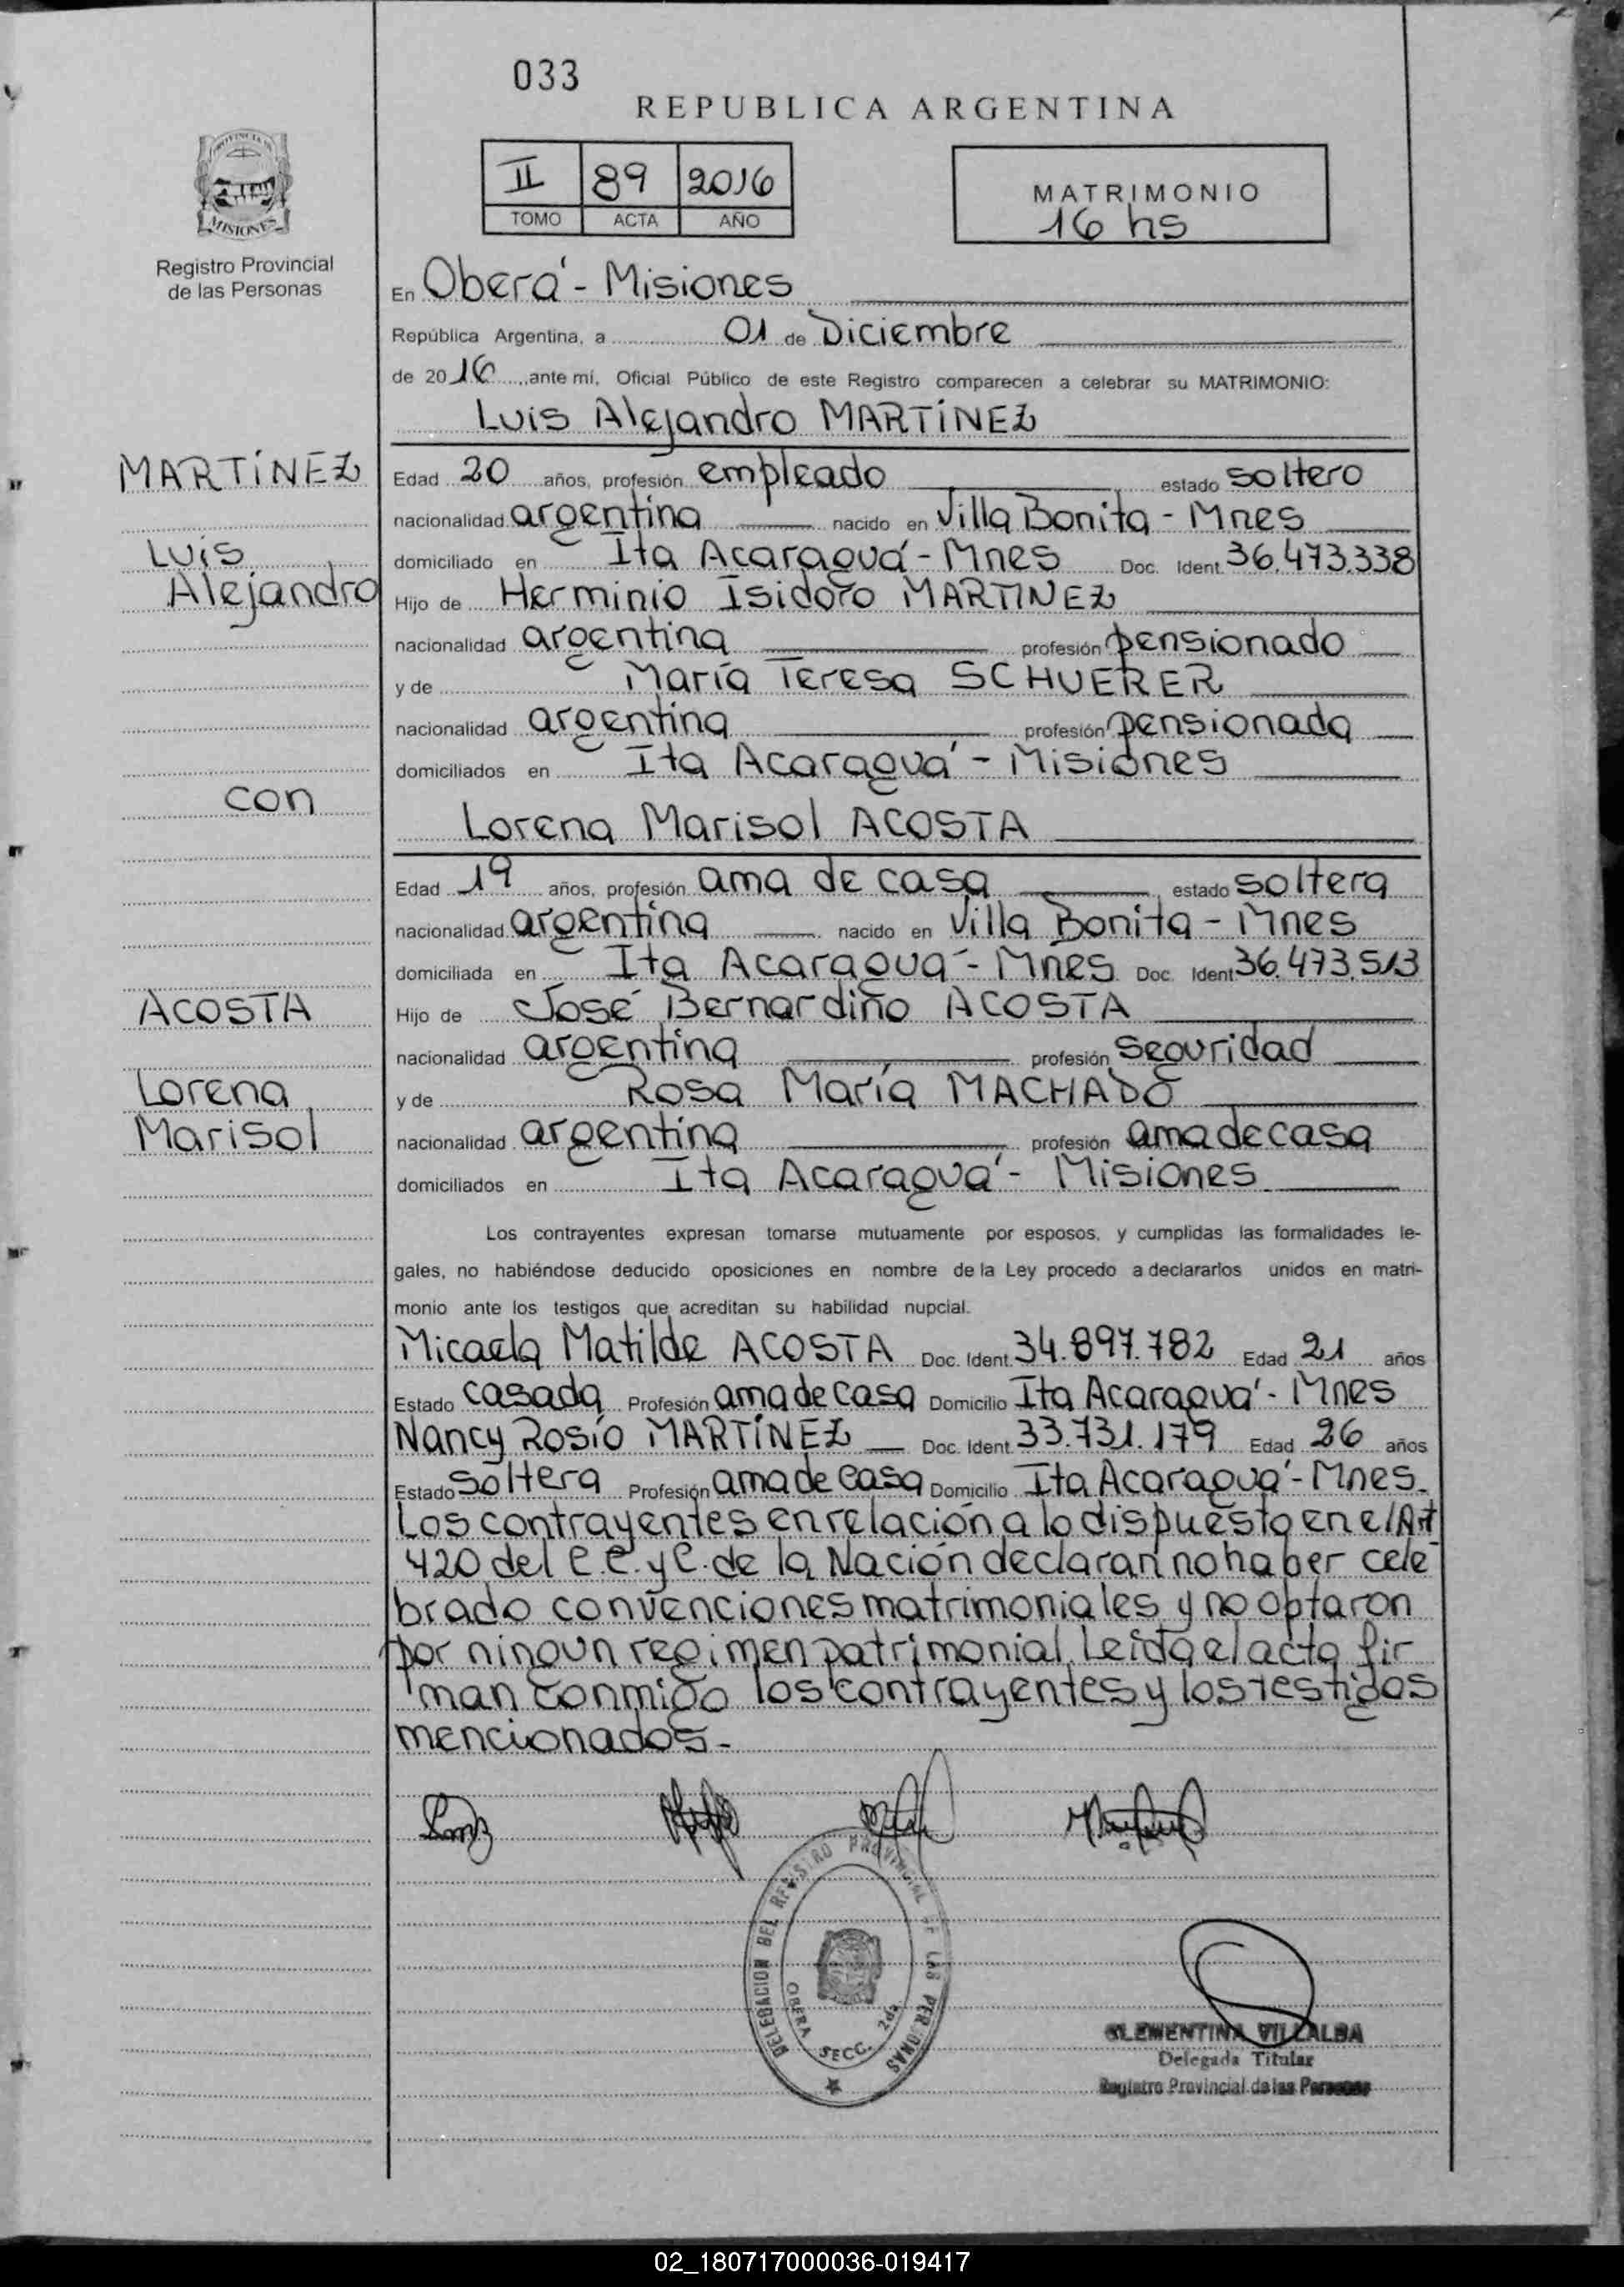 033
REPUBLICA ARGENTINA
PROVINCIA DE
MISIONES
Registro Provincial
de las Personas
II 89 2016
TOMO ACTA AÑO
MATRIMONIO
16 hs
En Oberá - Misiones
República Argentina, a 01 de Diciembre
de 2016, ante mí, Oficial Público de este Registro comparecen a celebrar su MATRIMONIO:
Luis Alejandro MARTÍNEZ
MARTÍNEZ
Luis
Alejandro
con
ACOSTA
Lorena
Marisol
Edad 20 años, profesión empleado estado soltero
nacionalidad argentina nacido en Villa Bonita - Mnes
domiciliado en Ita Acaraguá - Mnes Doc. Ident. 36.473.338
Hijo de Herminio Isidoro MARTINEZ
nacionalidad argentina profesión pensionado
y de María Teresa SCHUERER
nacionalidad argentina profesión pensionada
domiciliados en Ita Acaraguá - Misiones
Lorena Marisol ACOSTA
Edad 19 años, profesión ama de casa estado soltera
nacionalidad argentina nacido en Villa Bonita - Mnes
domiciliada en Ita Acaraguá - Mnes Doc. Ident. 36.473.513
Hijo de José Bernardiño ACOSTA
nacionalidad argentina profesión seguridad
y de Rosa María MACHADO
nacionalidad argentina profesión ama de casa
domiciliados en Ita Acaraguá - Misiones
Los contrayentes expresan tomarse mutuamente por esposos, y cumplidas las formalidades le-
gales, no habiéndose deducido oposiciones en nombre de la Ley procedo a declararlos unidos en matri-
monio ante los testigos que acreditan su habilidad nupcial.
Micaela Matilde ACOSTA Doc. Ident. 34.897.782 Edad 21 años
Estado casada Profesión ama de casa Domicilio Ita Acaraguá - Mnes
Nancy Rosío MARTÍNEZ Doc. Ident. 33.731.179 Edad 26 años
Estado soltera Profesión ama de casa Domicilio Ita Acaraguá - Mnes.
Los contrayentes en relación a lo dispuesto en el Art
420 del C.C. y C. de la Nación declaran no haber cele
brado convenciones matrimoniales y no optaron
por ningun regimen patrimonial. Leída el acta fir
man conmigo los contrayentes y los testigos
mencionados.-
DELEGACION DEL REGISTRO PROVINCIAL DE LAS PERSONAS
OBERA SECC. 2da
CLEMENTINA VILLALBA
Delegada Titular
Registro Provincial de las Personas
02_180717000036-019417